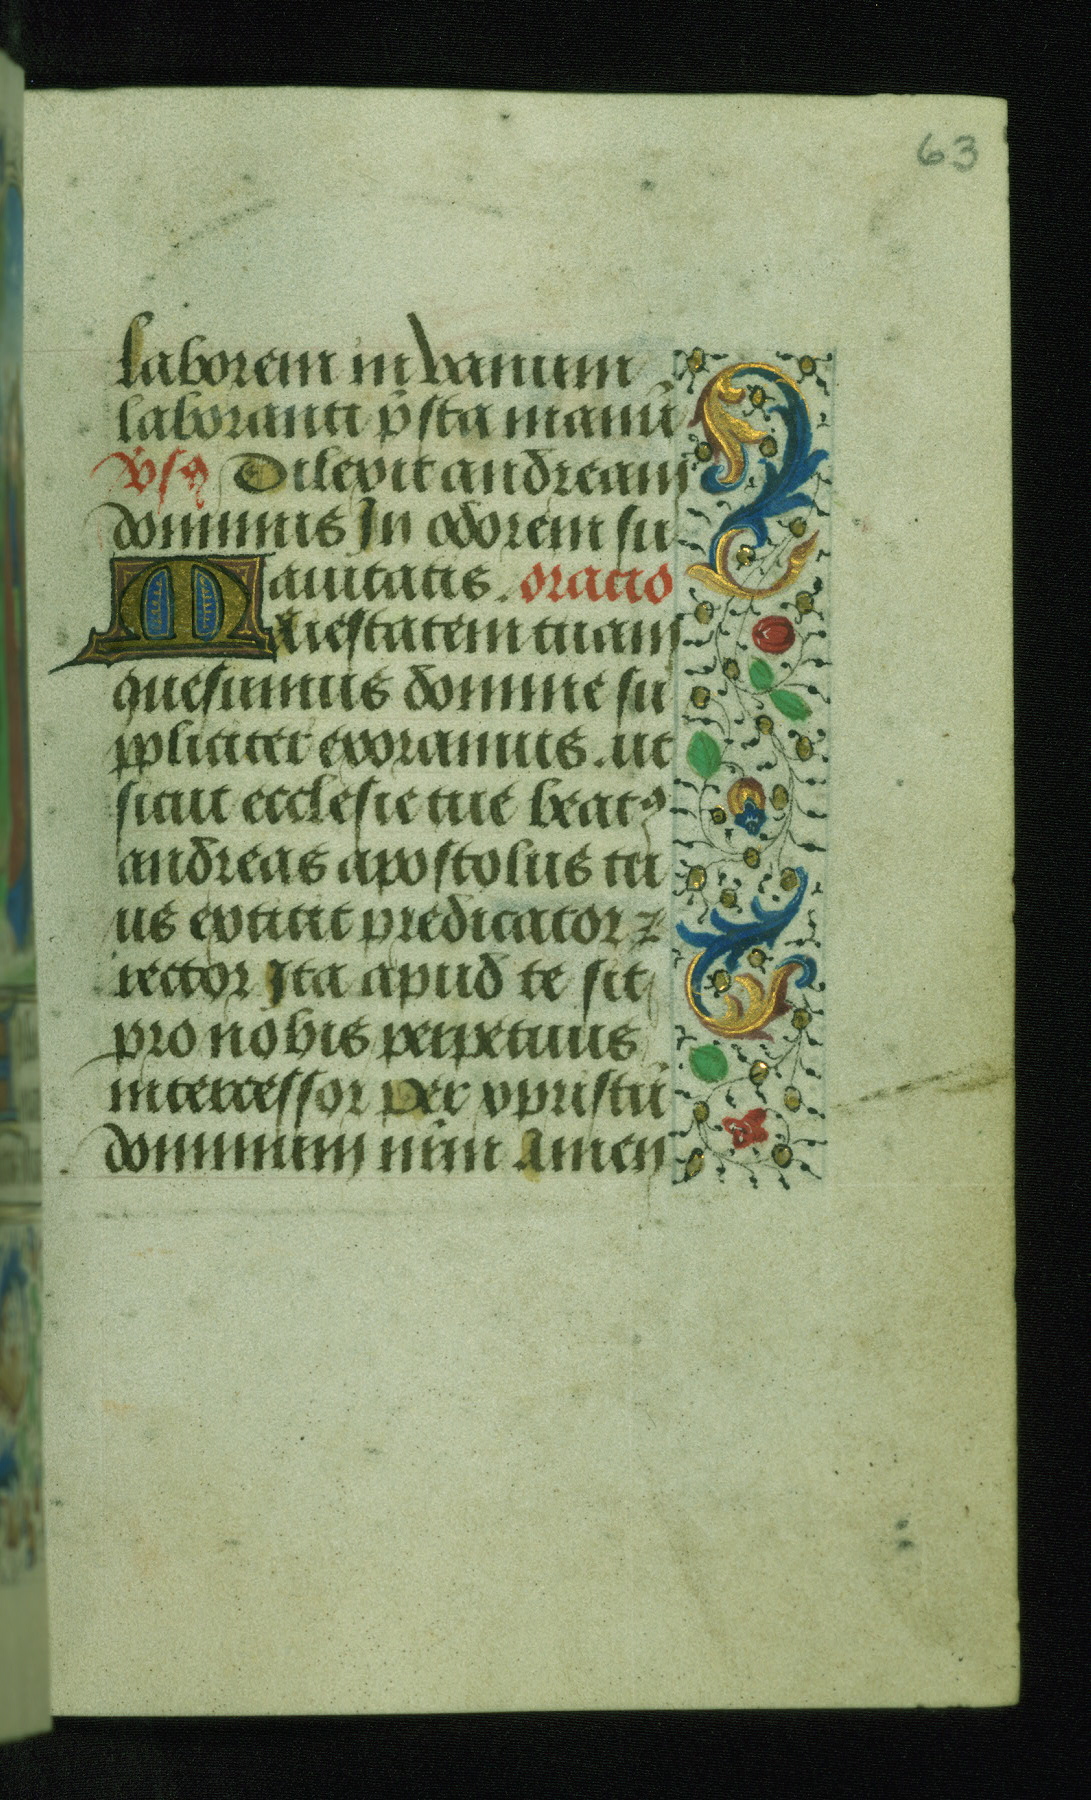 63
laborem in vanum
laboranti p̄sta manū
vsꝰ Dilexit andream
dominus In odorem su
auitatis. oratio
Maiestatem tuam
quesumus domine su
ppliciter exoramus. ut
sicut ecclesie tue beatꝰ
andreas apostolus tu
us extitit predicator ⁊
rector Ita apud te sit
pro nobis perpetuus
intercessor Per xpristū
dominum nr̄m Amen